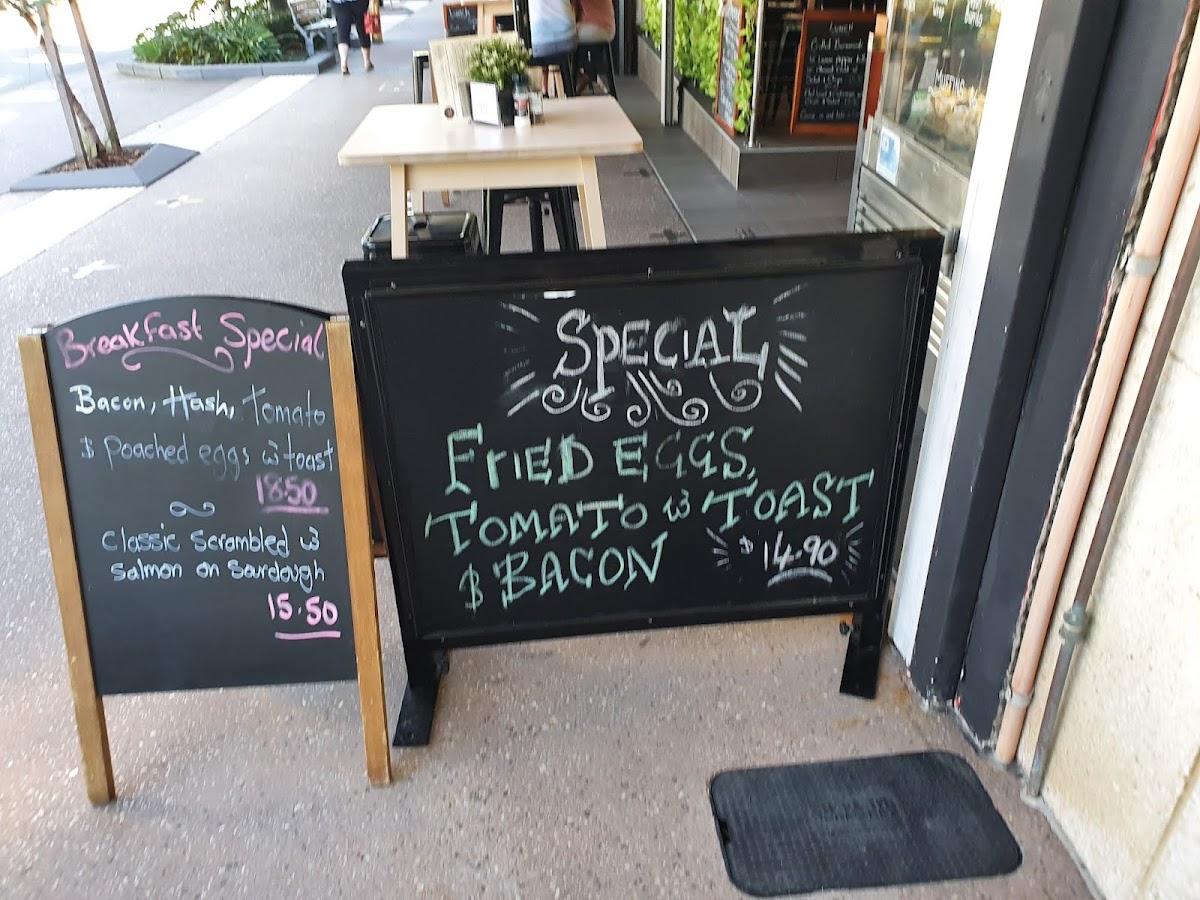 Breakfast Special
Bacon, Hash, Tomato
& poached eggs w toast
18.50
Classic Scrambled w
Salmon on Sourdough
15.50
SPECIAL
FRIED EGGS,
TOMATO w TOAST
& BACON
$14.90
MUFFINS